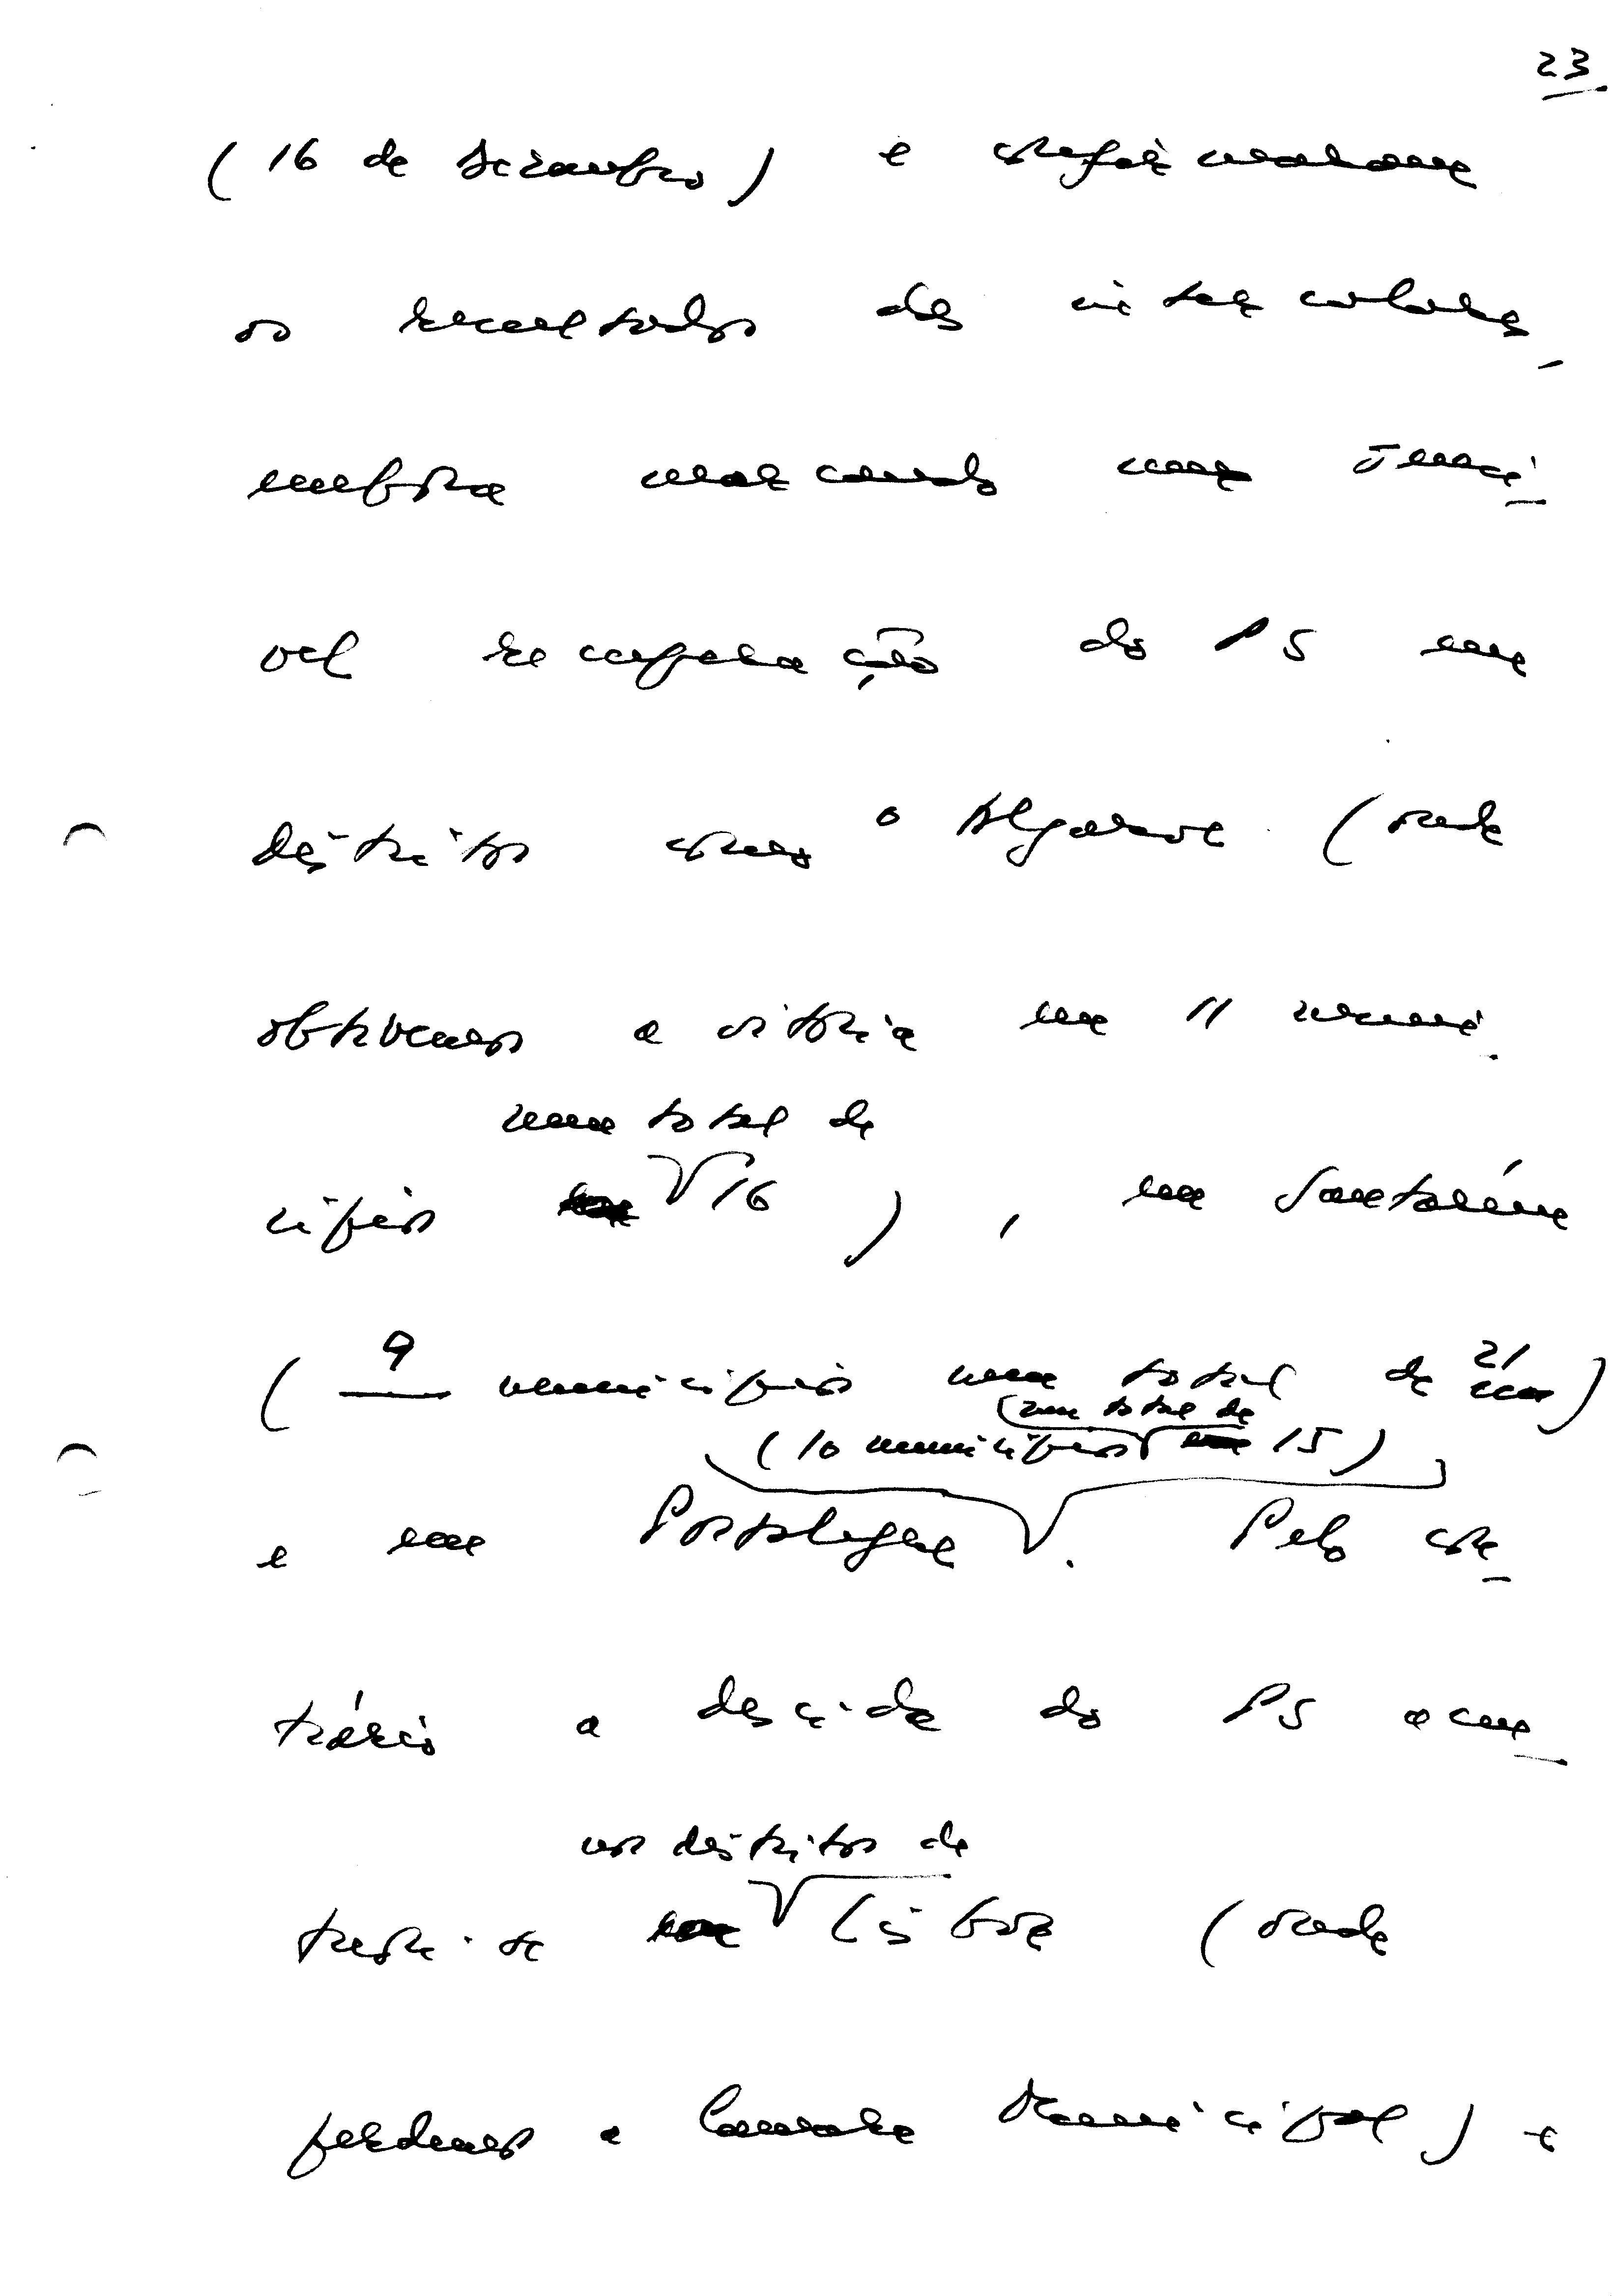 23
(16 de Dezembro) e confirmaram
os resultados das intercalares,
embora marcando uma sensí-
vel recuperação do PS em
distritos como o Algarve (onde
obtivemos a vitória em 11 muni-
num total de
cípios 16), em Santarém
(9 municípios num total de 21)
(num total de
(10 municípios 15)
e em Portalegre. Pelo con-
trário a descida do PS acen-
nos distritos de
tuou-se Lisboa (onde
perdemos a Câmara Municipal) e